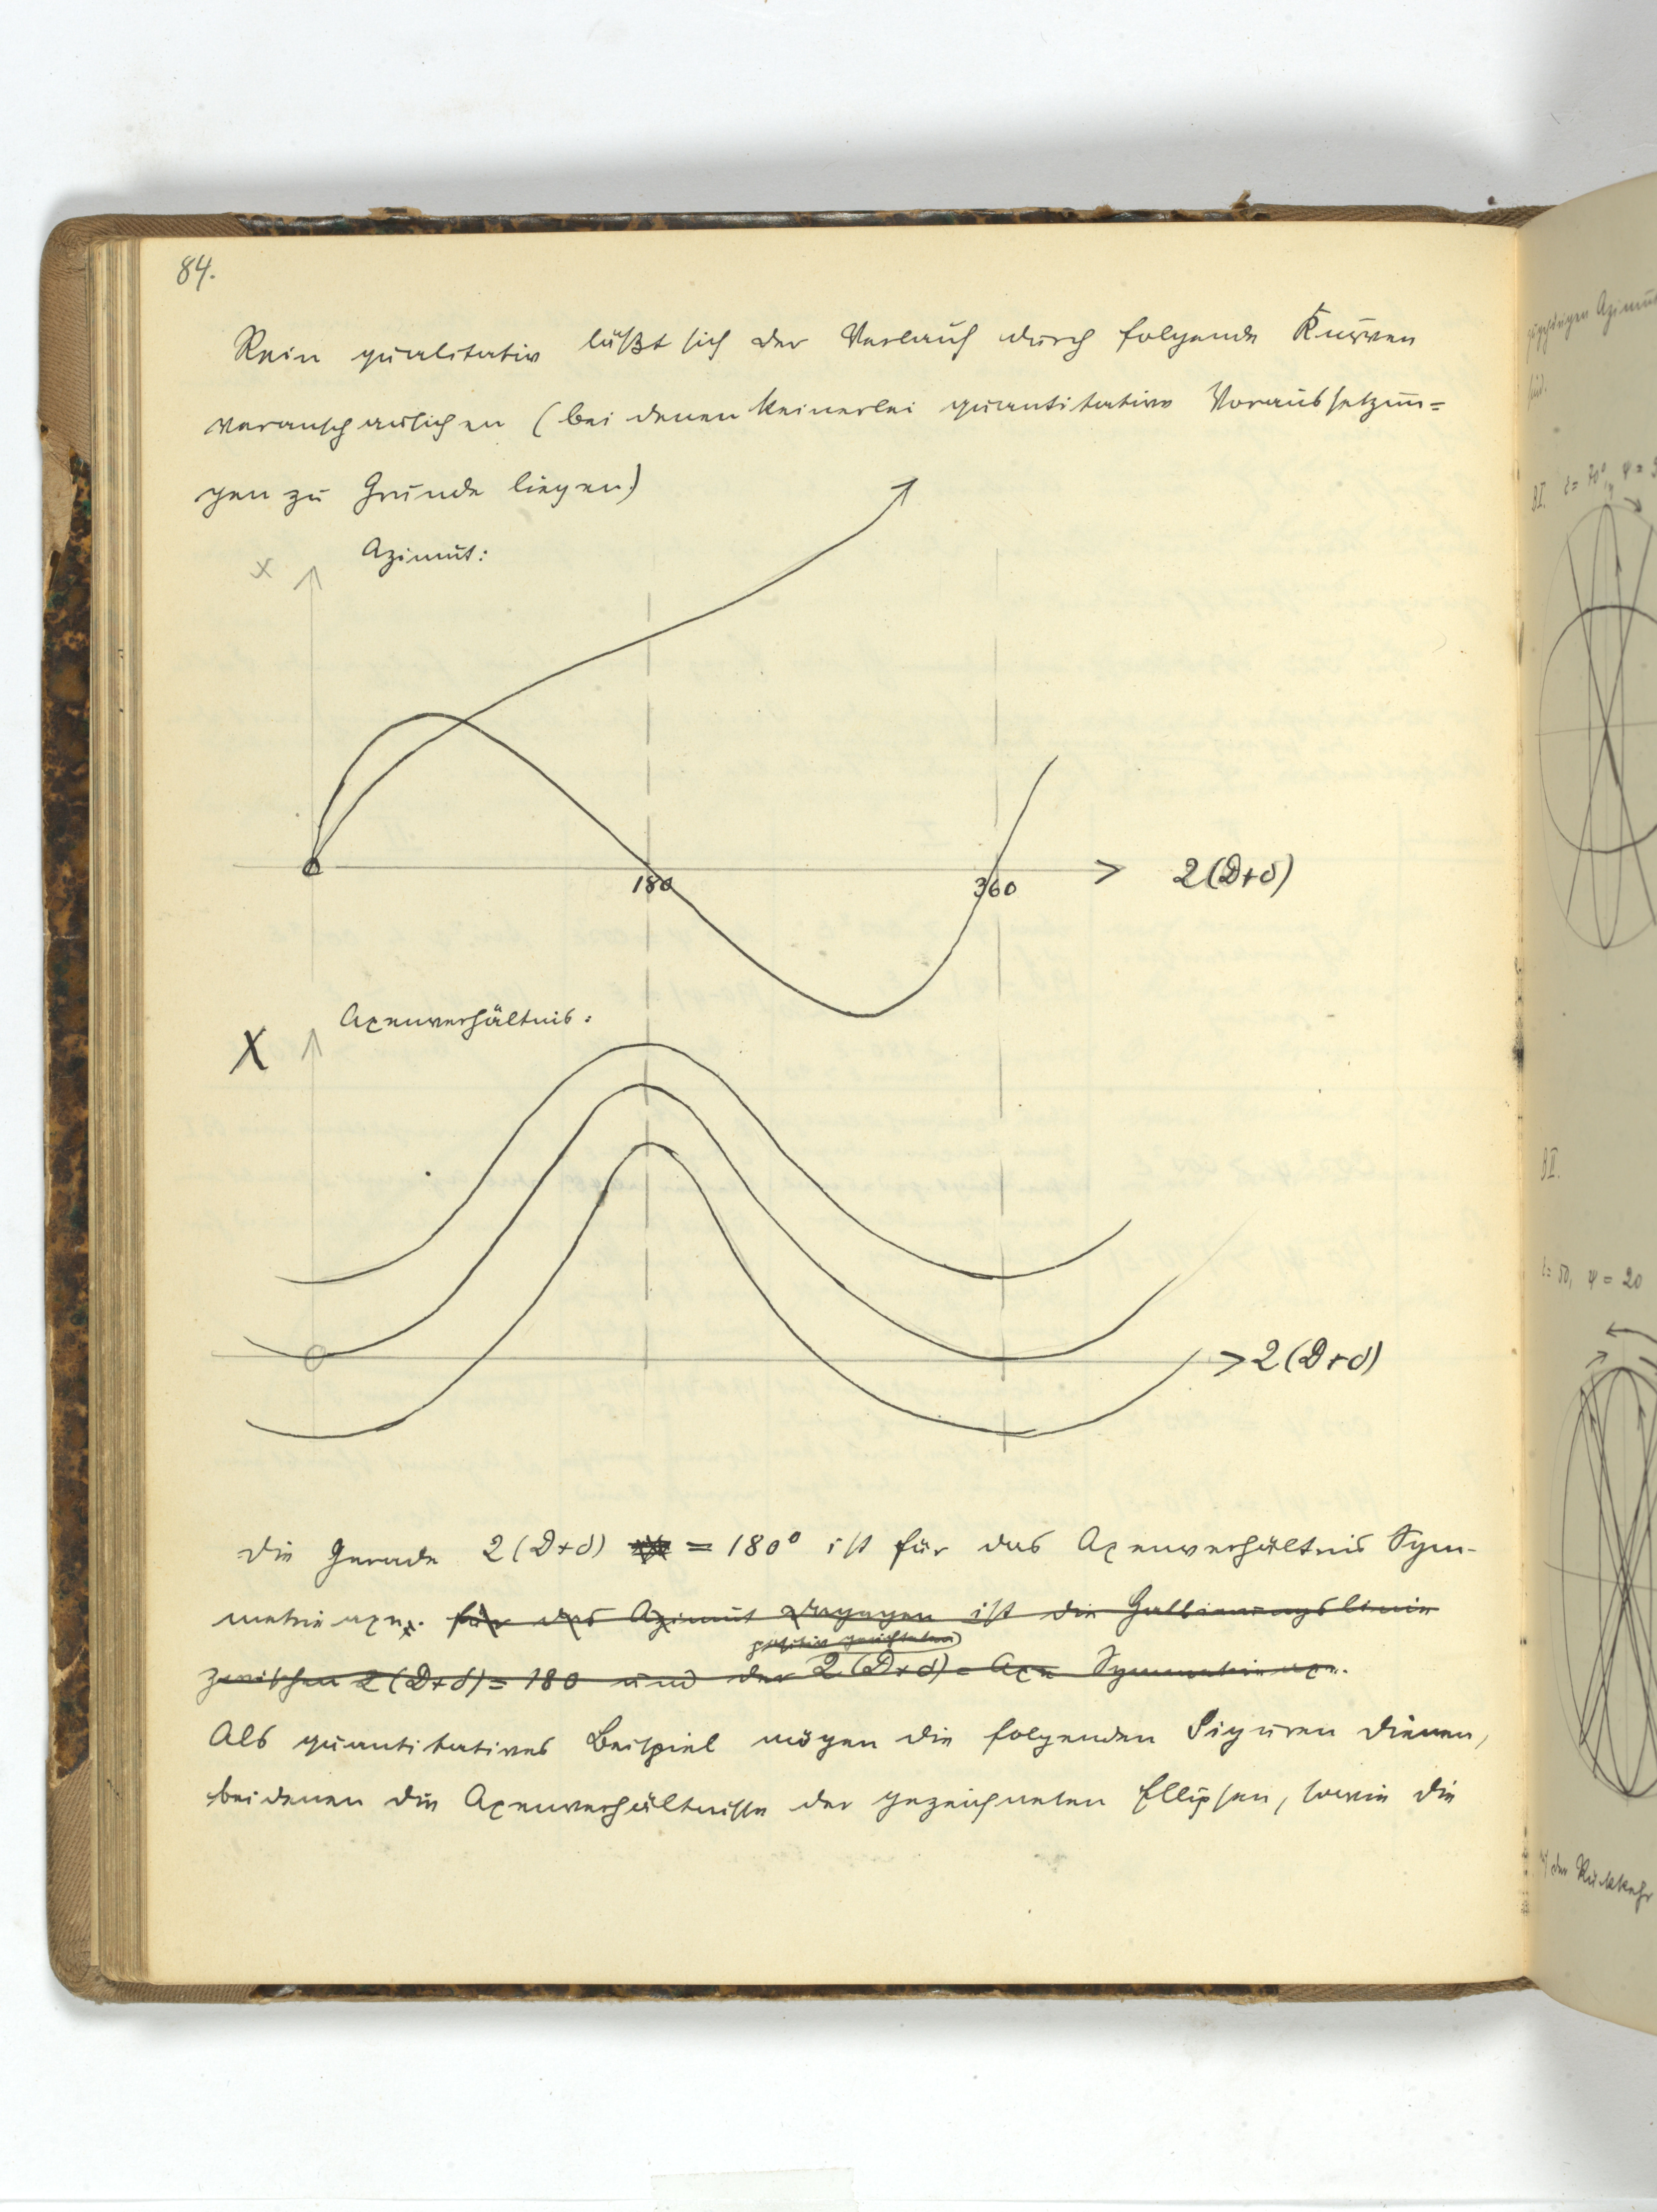 84.
Rein qualitativ läßt sich der Verlauf durch folgende Kurven
veranschaulichen (bei denen keinerlei quantitative Voraussetzun=
gen zu Grunde liegen)
Azimut:
x
180
360
2(D+δ)
Axenverhältnis:
X
2(D+δ)
Die Gerade 2(D+δ) = 180° ist für das Axenverhältnis Sym-
metrieaxe. für das Azimut dagegen ist die Halbierungslinie
positiv gerichteten
zwischen 2(D+δ) = 180 und der 2(D+δ) = Axe Symmetrieaxe.
Als quantitatives Beispiel mögen die folgenden Figuren dienen,
bei denen die Axenverhältnisse der gezeichneten Ellipsen, sowie die
zugehörigen Azimut
sind.
BI. ε = 70°, φ =
BII.
ε = 50, φ = 20
der Rückkehr